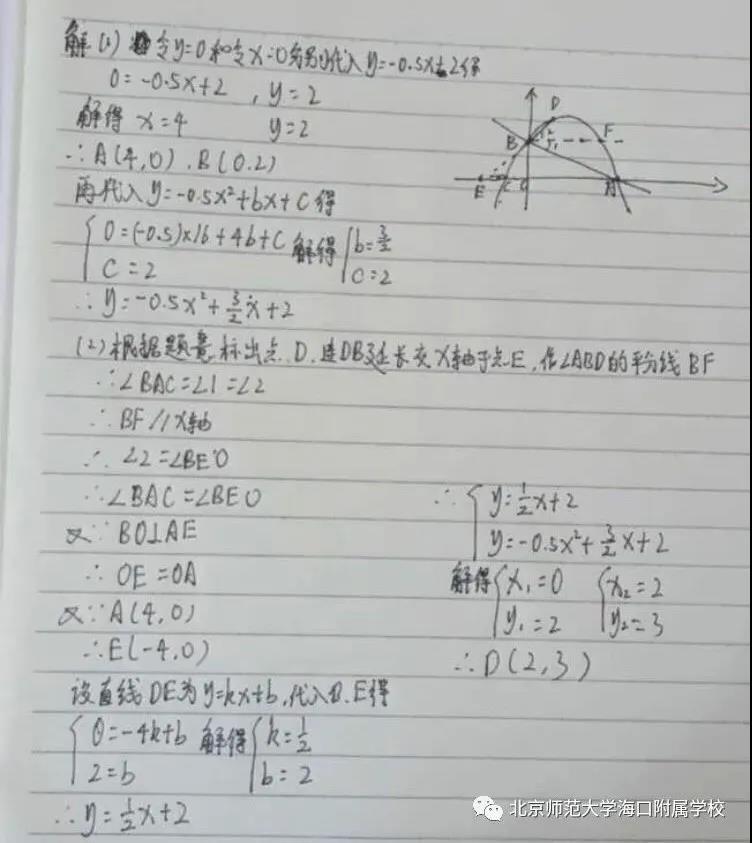 解 (1) 令y=0和令x=0分别代入y=-0.5x+2得
0=-0.5x+2 , y=2
解得 x=4 y=2
∴A(4,0).B(0.2)
再代入y=-0.5x²+bx+C得
{0=(-0.5)×16+4b+C 解得{b=3/2
C=2 C=2
∴y=-0.5x²+3/2x+2
D
B 1 2 F
E C O A
(2)根据题意标出点D.连DB延长交X轴于点E,作∠ABD的平分线BF
∴∠BAC=∠1=∠2
∴BF//X轴
∴∠2=∠BEO
∴∠BAC=∠BEO
又∵BO⊥AE
∴OE=OA
又∵A(4,0)
∴E(-4,0)
设直线DE为y=kx+b,代入B.E得
{0=-4k+b 解得{k=1/2
2=b b=2
∴y=1/2x+2
∴{y=1/2x+2
y=-0.5x²+3/2x+2
解得{x₁=0 {x₂=2
y₁=2 y₂=3
∴D(2,3)
北京师范大学海口附属学校